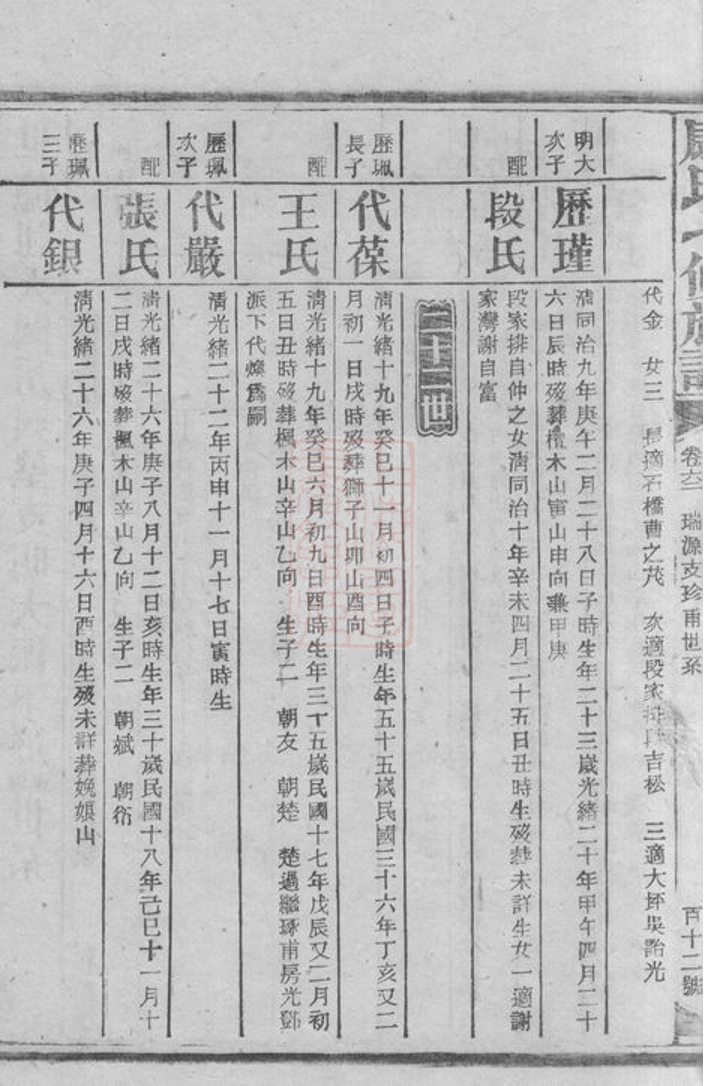 氏六修族譜
卷六二 瑞源支珍甫世系
百十二號
代金 女三 長適石橋曹之茂 次適段家排段吉松 三適大坪吳詒光
明大次子
歷瑾
清同治九年庚午二月二十八日子時生年二十三歲光緒二十年甲午四月二十
六日辰時歿葬檀木山寅山申向兼甲庚
配
段氏
段家排自仲之女清同治十年辛未四月二十五日丑時生歿葬未詳生女一適謝
家灣謝自富
歷珮長子
代葆
清光緒十九年癸巳十一月初四日子時生年五十五歲民國三十六年丁亥又二
月初一日戌時歿葬獅子山卯山酉向
配
王氏
清光緒十九年癸巳六月初九日酉時生年三十五歲民國十七年戊辰又二月初
五日丑時歿葬楓木山辛山乙向 生子二 朝友 朝楚 楚過繼琢甫房光鄧
派下代燦爲嗣
歷珮次子
代嚴
清光緒二十二年丙申十一月十七日寅時生
配
張氏
清光緒二十六年庚子八月十二日亥時生年三十歲民國十八年己巳十一月十
二日戌時歿葬楓木山辛山乙向 生子二 朝斌 朝衍
歷珮三子
代銀
清光緒二十六年庚子四月十六日酉時生歿未詳葬娩娘山